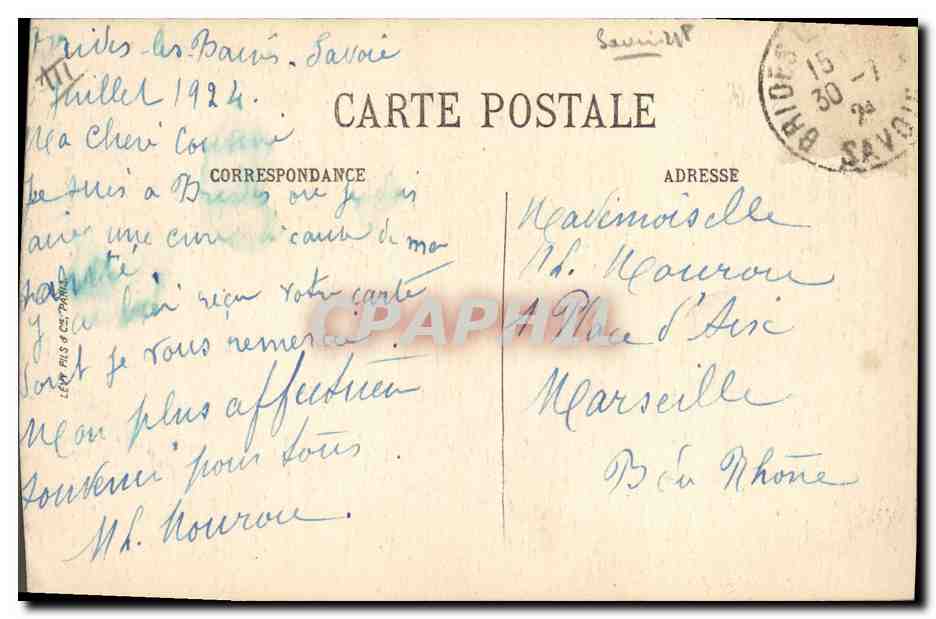 Brides-les-Bains. Savoie
Juillet 1924.
Ma Chère Cousine
Je suis à Brides où je fais
faire une cure à cause de ma
santé.
J'ai bien reçu votre carte
dont je vous remercie.
Mon plus affectueux
souvenir pour tous.
Th. Mourou.
LEVY FILS & Cie, PARIS
CARTE POSTALE
CORRESPONDANCE
ADRESSE
BRIDES
15
30 -7
24
SAVOIE
Mademoiselle
Th. Mourou
Place d'Aix
Marseille
B du Rhône
CPAPHIL